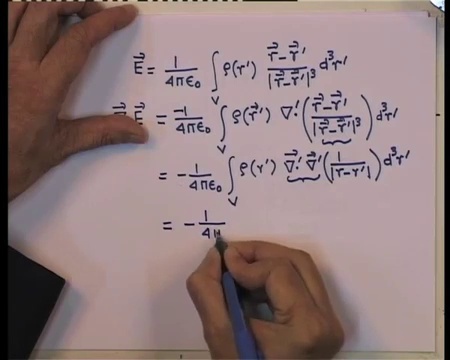 E⃗ = 1/4πε₀ ∫_V ρ(r') (r⃗−r⃗')/|r⃗−r⃗'|³ d³r'
E⃗ = −1/4πε₀ ∫_V ρ(r⃗') ∇'·((r⃗−r⃗')/|r⃗−r⃗'|³) d³r'
= −1/4πε₀ ∫_V ρ(r') ∇⃗'·∇⃗'(1/|r−r'|) d³r'
= −1/4π